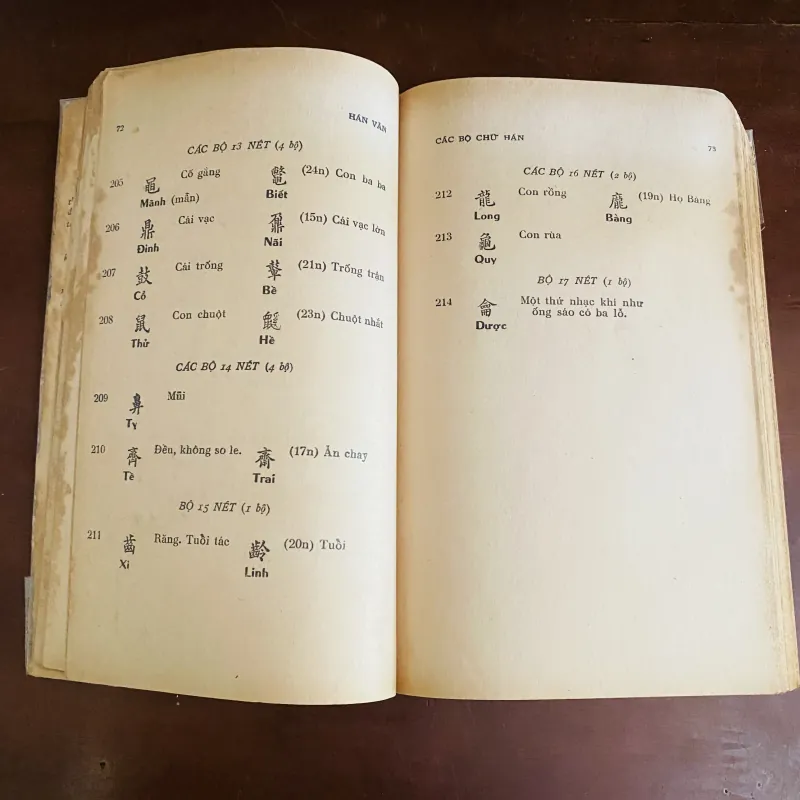 72
HÁN VĂN
CÁC BỘ 13 NÉT (4 bộ)
205 黽 Cố gắng 鼈 (24n) Con ba ba
Mãnh (mẫn) Biết
206 鼎 Cái vạc 鼐 (15n) Cái vạc lớn
Đỉnh Nãi
207 鼓 Cái trống 鼙 (21n) Trống trận
Cổ Bề
208 鼠 Con chuột 鼷 (23n) Chuột nhắt
Thử Hề
CÁC BỘ 14 NÉT (4 bộ)
209 鼻 Mũi
Tỵ
210 齊 Đều, không so le. 齋 (17n) Ăn chay
Tề Trai
BỘ 15 NÉT (1 bộ)
211 齒 Răng. Tuổi tác 齡 (20n) Tuổi
Xỉ Linh
CÁC BỘ CHỮ HÁN
73
CÁC BỘ 16 NÉT (2 bộ)
212 龍 Con rồng 龐 (19n) Họ Bàng
Long Bàng
213 龜 Con rùa
Quy
BỘ 17 NÉT (1 bộ)
214 龠 Một thứ nhạc khí như
ống sáo có ba lỗ.
Dược